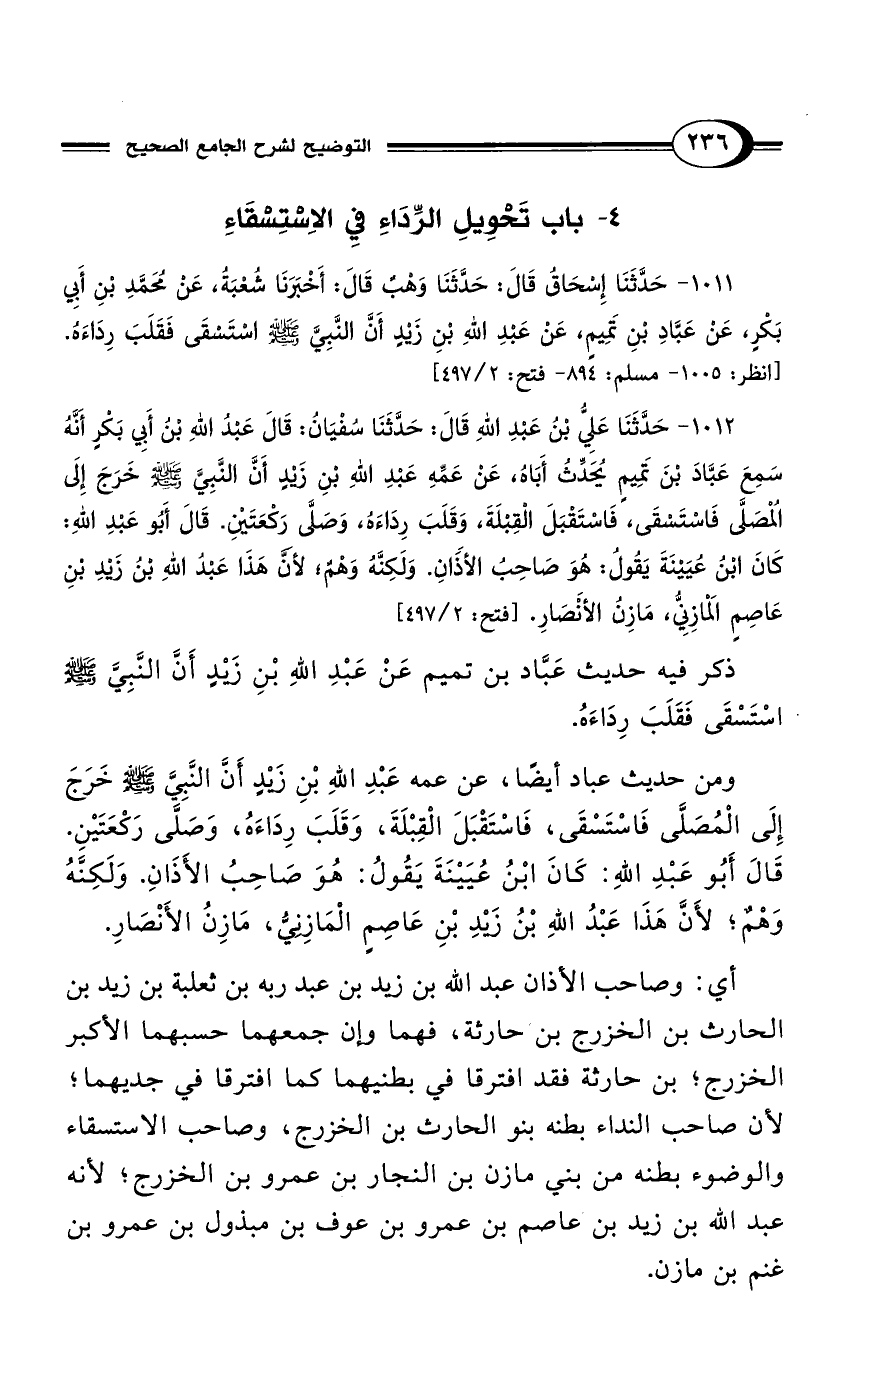 ٢٣٦ التوضيح لشرح الجامع الصحيح
٤- باب تَحْوِيلِ الرِّدَاءِ فِي الاِسْتِسْقَاءِ
١٠١١- حَدَّثَنَا إِسْحَاقُ قَالَ: حَدَّثَنَا وَهْبٌ قَالَ: أَخْبَرَنَا شُعْبَةُ، عَنْ مُحَمَّدِ بْنِ أَبِي
بَكْرٍ، عَنْ عَبَّادِ بْنِ تَمِيمٍ، عَنْ عَبْدِ اللهِ بْنِ زَيْدٍ أَنَّ النَّبِيَّ ﷺ اسْتَسْقَى فَقَلَبَ رِدَاءَهُ.
[انظر: ١٠٠٥- مسلم: ٨٩٤- فتح: ٤٩٧/٢]
١٠١٢- حَدَّثَنَا عَلِيُّ بْنُ عَبْدِ اللهِ قَالَ: حَدَّثَنَا سُفْيَانُ: قَالَ عَبْدُ اللهِ بْنُ أَبِي بَكْرٍ أَنَّهُ
سَمِعَ عَبَّادَ بْنَ تَمِيمٍ يُحَدِّثُ أَبَاهُ، عَنْ عَمِّهِ عَبْدِ اللهِ بْنِ زَيْدٍ أَنَّ النَّبِيَّ ﷺ خَرَجَ إِلَى
الْمُصَلَّى فَاسْتَسْقَى، فَاسْتَقْبَلَ الْقِبْلَةَ، وَقَلَبَ رِدَاءَهُ، وَصَلَّى رَكْعَتَيْنِ. قَالَ أَبُو عَبْدِ اللهِ:
كَانَ ابْنُ عُيَيْنَةَ يَقُولُ: هُوَ صَاحِبُ الأَذَانِ. وَلَكِنَّهُ وَهْمٌ؛ لأَنَّ هَذَا عَبْدُ اللهِ بْنُ زَيْدِ بْنِ
عَاصِمٍ الْمَازِنِيُّ، مَازِنُ الأَنْصَارِ. [فتح: ٤٩٧/٢]
ذكر فيه حديث عَبَّاد بن تميم عَنْ عَبْدِ اللهِ بْنِ زَيْدٍ أَنَّ النَّبِيَّ ﷺ
اسْتَسْقَى فَقَلَبَ رِدَاءَهُ.
ومن حديث عباد أيضًا، عن عمه عَبْدِ اللهِ بْنِ زَيْدٍ أَنَّ النَّبِيَّ ﷺ خَرَجَ
إِلَى الْمُصَلَّى فَاسْتَسْقَى، فَاسْتَقْبَلَ الْقِبْلَةَ، وَقَلَبَ رِدَاءَهُ، وَصَلَّى رَكْعَتَيْنِ.
قَالَ أَبُو عَبْدِ اللهِ: كَانَ ابْنُ عُيَيْنَةَ يَقُولُ: هُوَ صَاحِبُ الأَذَانِ. وَلَكِنَّهُ
وَهْمٌ؛ لأَنَّ هَذَا عَبْدُ اللهِ بْنُ زَيْدِ بْنِ عَاصِمٍ الْمَازِنِيُّ، مَازِنُ الأَنْصَارِ.
أي: وصاحب الأذان عبد الله بن زيد بن عبد ربه بن ثعلبة بن زيد بن
الحارث بن الخزرج بن حارثة، فهما وإن جمعهما حسبهما الأكبر
الخزرج؛ بن حارثة فقد افترقا في بطنيهما كما افترقا في جديهما؛
لأن صاحب النداء بطنه بنو الحارث بن الخزرج، وصاحب الاستسقاء
والوضوء بطنه من بني مازن بن النجار بن عمرو بن الخزرج؛ لأنه
عبد الله بن زيد بن عاصم بن عمرو بن عوف بن مبذول بن عمرو بن
غنم بن مازن.